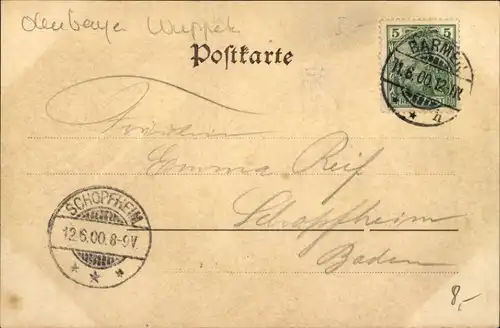 Wuppert
5.-
Postkarte
5
BARMEN
11.6.00.12-1N.
* h
Fräulein
Emma Reif
Schopfheim
Baden
SCHOPFHEIM
12.6.00.8-9V.
* * *
8,-